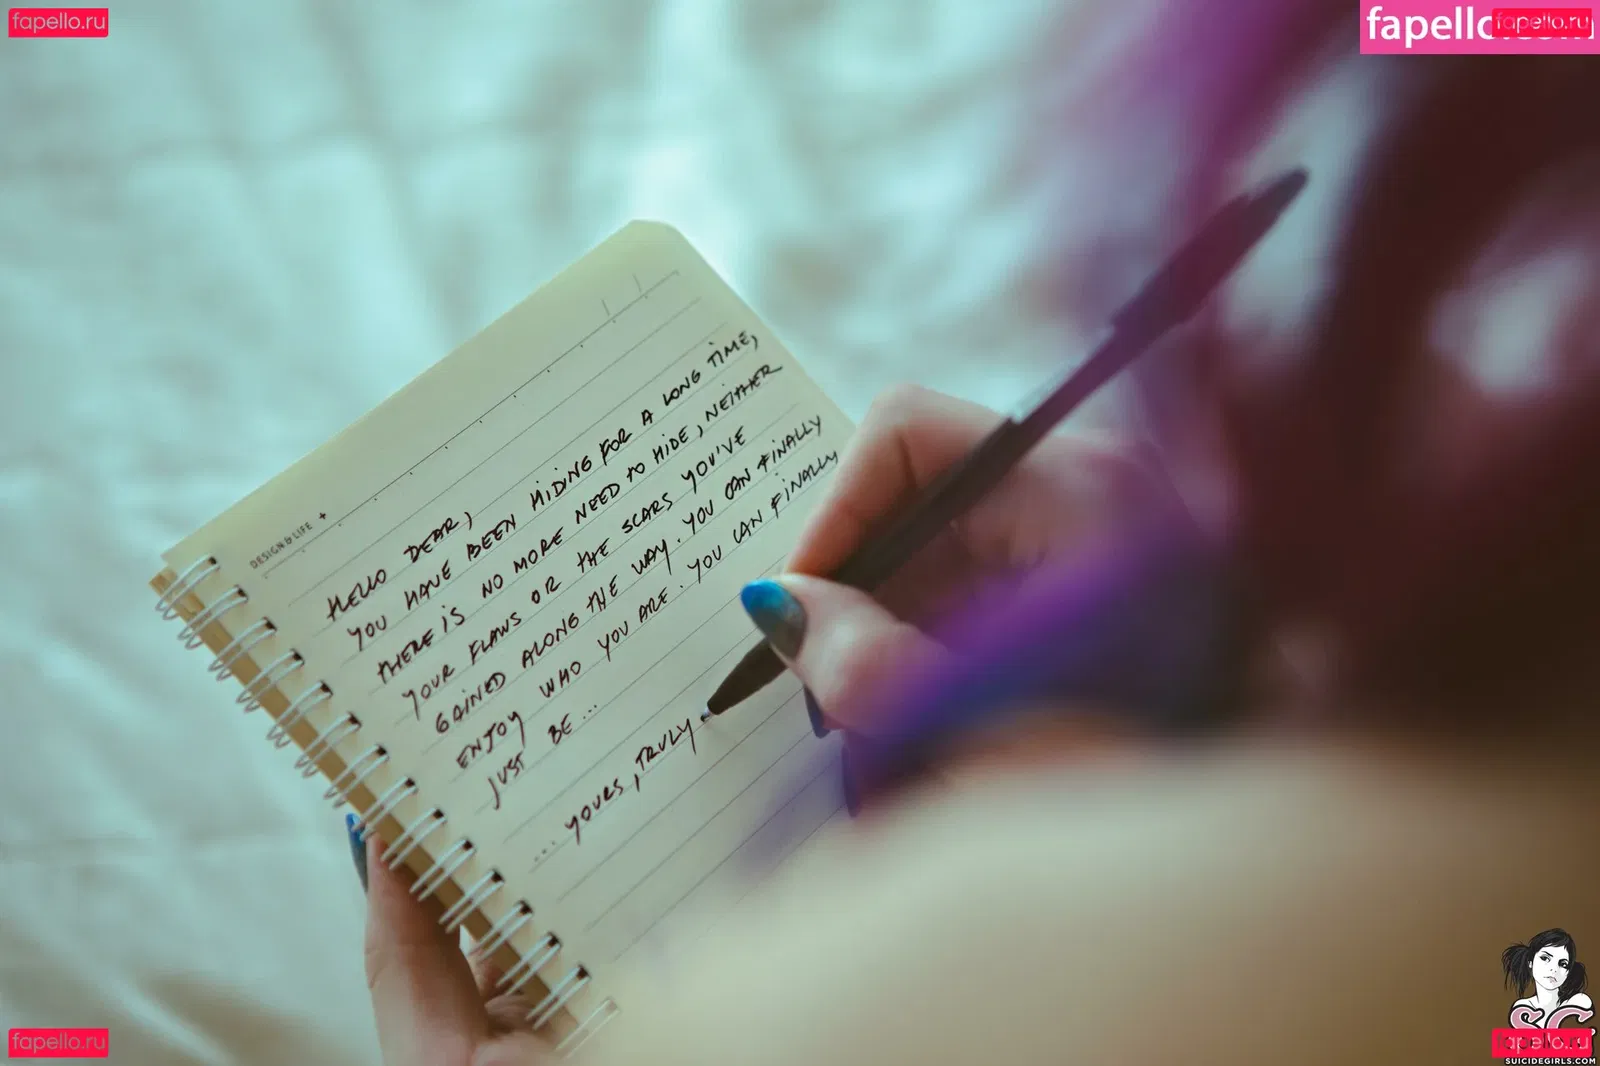 fapello.ru
fapello.com
fapello.ru
DESIGN & LIFE +
HELLO DEAR,
YOU HAVE BEEN HIDING FOR A LONG TIME,
THERE IS NO MORE NEED TO HIDE, NEITHER
YOUR FLAWS OR THE SCARS YOU'VE
GAINED ALONG THE WAY. YOU CAN FINALLY
ENJOY WHO YOU ARE. YOU CAN FINALLY
JUST BE...
... YOURS, TRULY
fapello.ru
SG
fapello.ru
SUICIDEGIRLS.COM